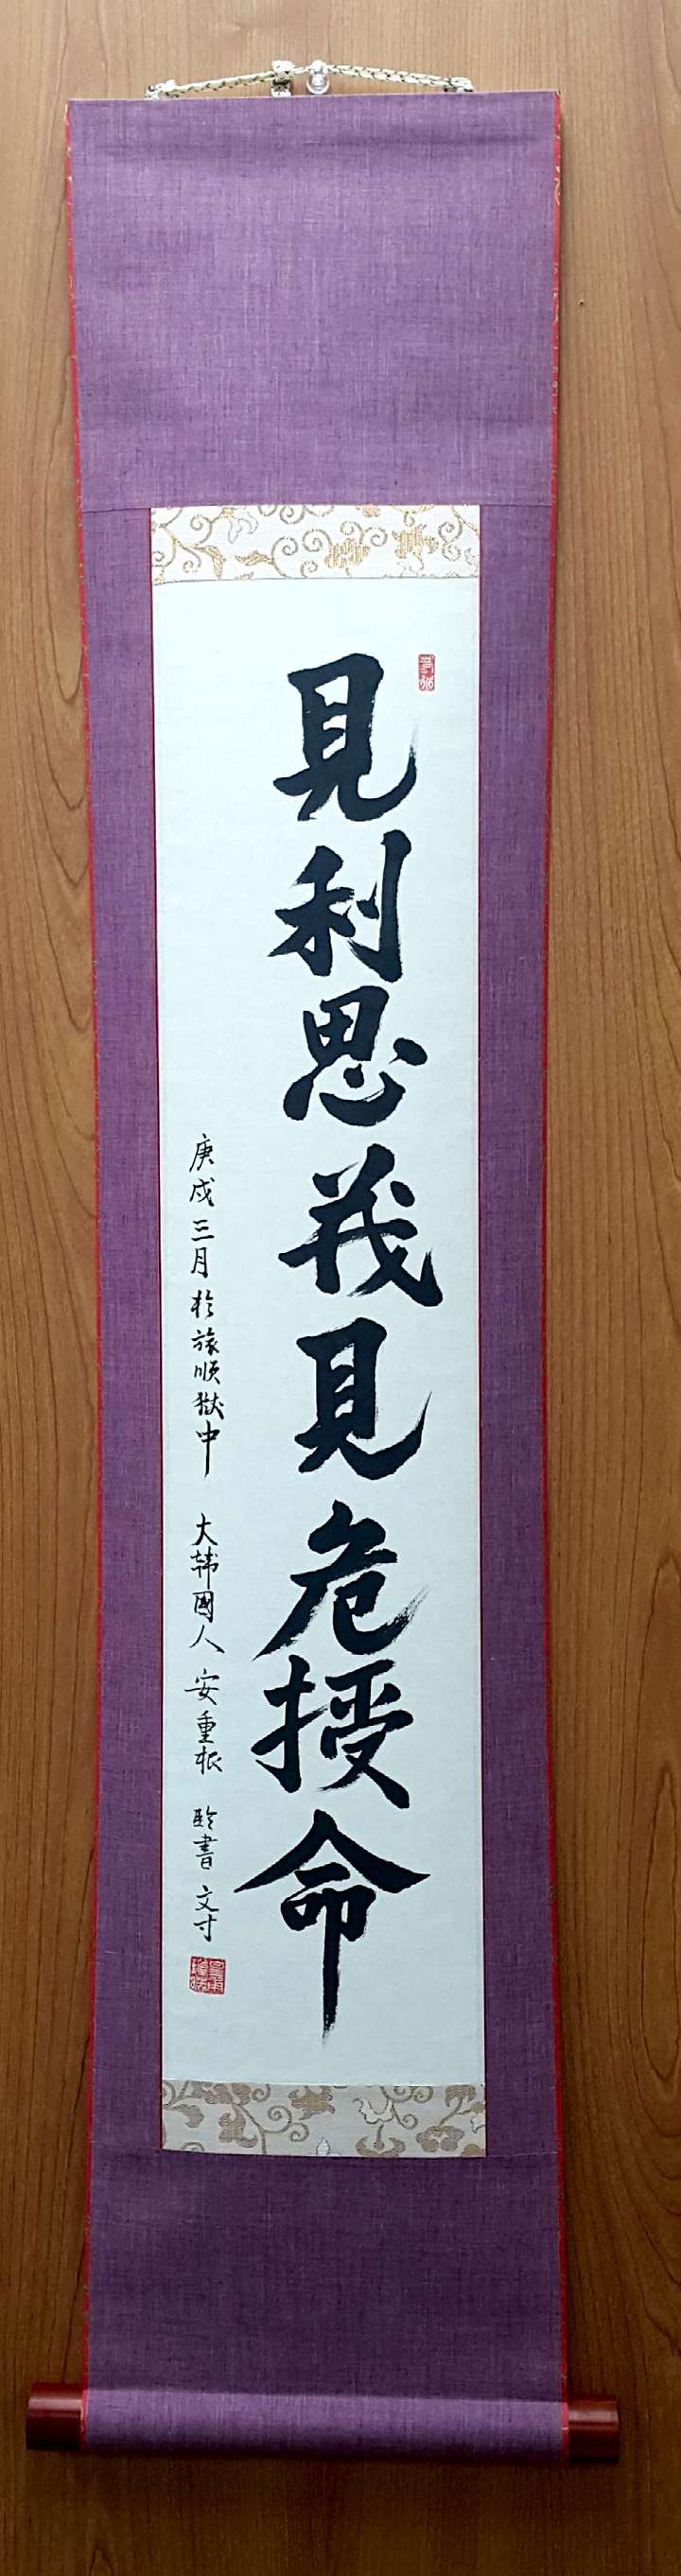 見利思義見危授命
庚戌三月於旅順獄中 大韓國人 安重根 臨書 文寸